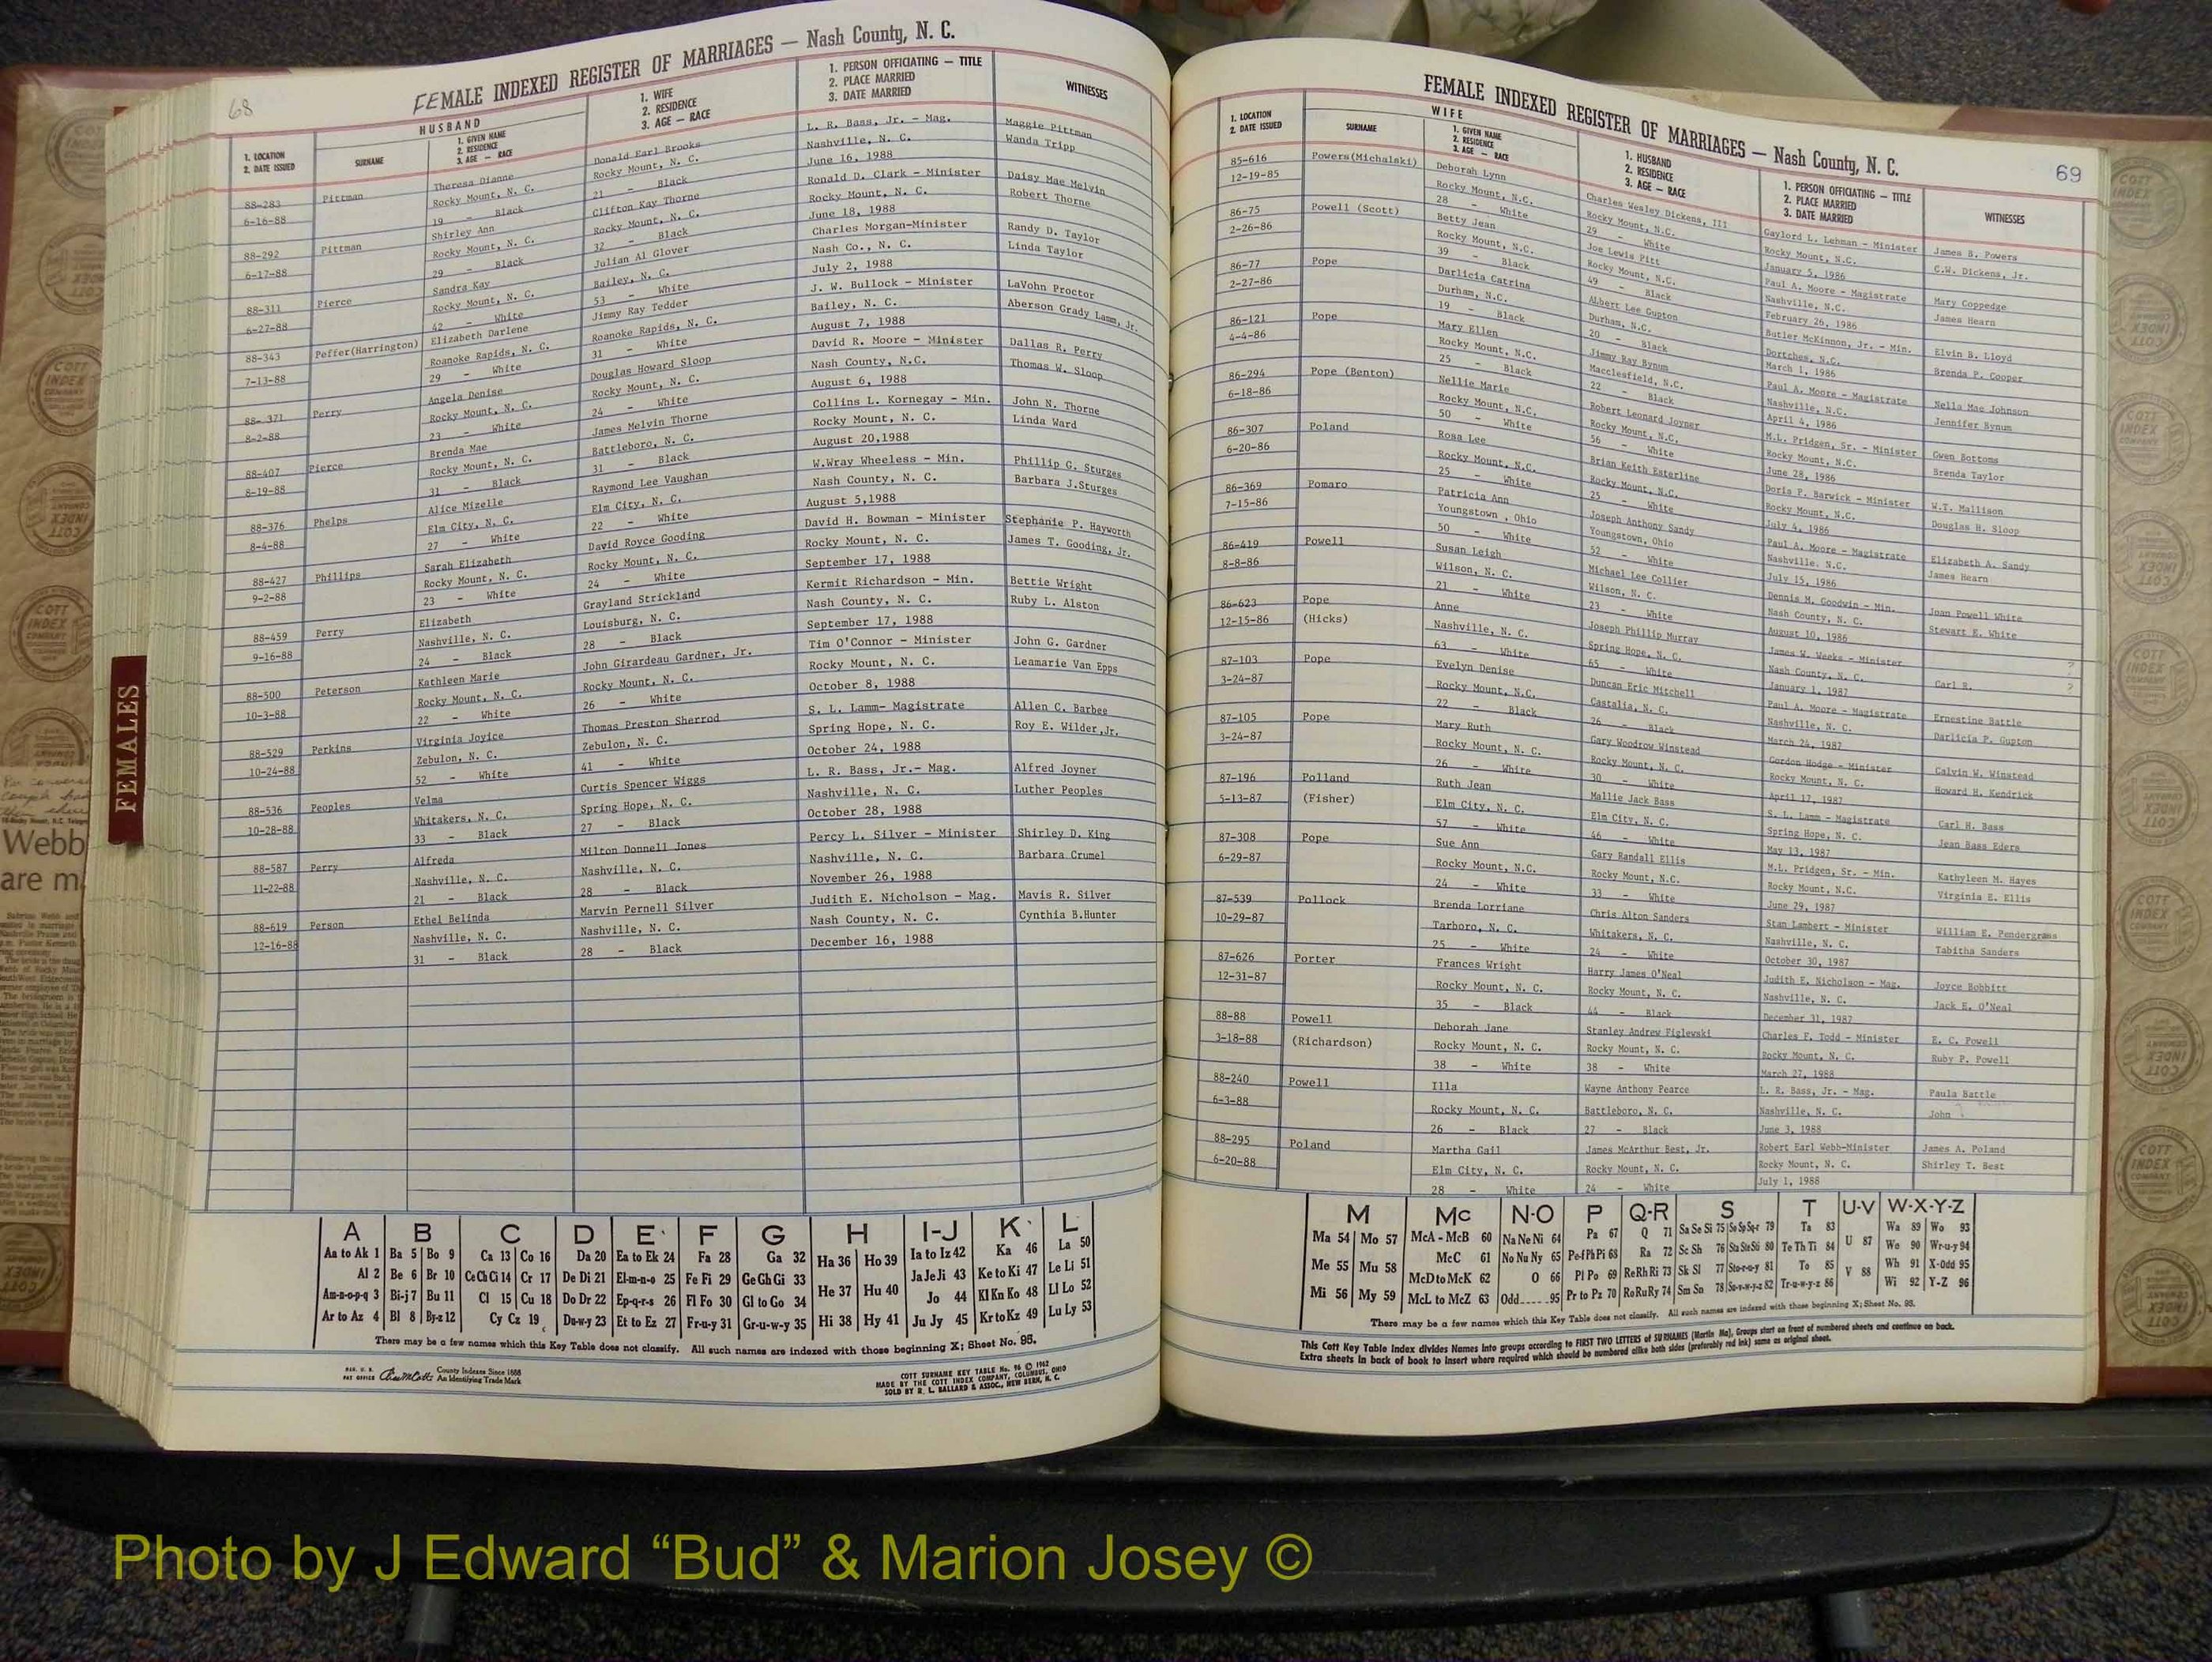 68
FEMALE INDEXED REGISTER OF MARRIAGES — Nash County, N. C.
HUSBAND
1. LOCATION
2. DATE ISSUED
SURNAME
1. GIVEN NAME
2. RESIDENCE
3. AGE — RACE
1. WIFE
2. RESIDENCE
3. AGE — RACE
1. PERSON OFFICIATING — TITLE
2. PLACE MARRIED
3. DATE MARRIED
WITNESSES
88-283 Pittman Theresa Dianne Donald Earl Brooks L. R. Bass, Jr. - Mag. Maggie Pittman
6-16-88 Rocky Mount, N. C. Rocky Mount, N. C. Nashville, N. C. Wanda Tripp
19 - Black 21 - Black June 16, 1988
88-292 Pittman Shirley Ann Clifton Kay Thorne Ronald D. Clark - Minister Daisy Mae Melvin
6-17-88 Rocky Mount, N. C. Rocky Mount, N. C. Rocky Mount, N. C. Robert Thorne
29 - Black 32 - Black June 18, 1988
88-311 Pierce Sandra Kay Julian Al Glover Charles Morgan-Minister Randy D. Taylor
6-27-88 Rocky Mount, N. C. Bailey, N. C. Nash Co., N. C. Linda Taylor
42 - White 53 - White July 2, 1988
88-343 Peffer(Harrington) Elizabeth Darlene Jimmy Ray Tedder J. W. Bullock - Minister LaVohn Proctor
7-13-88 Roanoke Rapids, N. C. Roanoke Rapids, N. C. Bailey, N. C. Aberson Grady Lamm, Jr.
29 - White 31 - White August 7, 1988
88-371 Perry Angela Denise Douglas Howard Sloop David R. Moore - Minister Dallas R. Perry
8-2-88 Rocky Mount, N. C. Rocky Mount, N. C. Nash County, N.C. Thomas W. Sloop
23 - White 24 - White August 6, 1988
88-407 Pierce Brenda Mae James Melvin Thorne Collins L. Kornegay - Min. John N. Thorne
8-19-88 Rocky Mount, N. C. Battleboro, N. C. Rocky Mount, N. C. Linda Ward
31 - Black 31 - Black August 20,1988
88-376 Phelps Alice Mizelle Raymond Lee Vaughan W.Wray Wheeless - Min. Phillip G. Sturges
8-4-88 Elm City, N. C. Elm City, N. C. Nash County, N. C. Barbara J.Sturges
27 - White 22 - White August 5,1988
88-427 Phillips Sarah Elizabeth David Royce Gooding David H. Bowman - Minister Stephanie P. Hayworth
9-2-88 Rocky Mount, N. C. Rocky Mount, N. C. Rocky Mount, N. C. James T. Gooding, Jr.
23 - White 24 - White September 17, 1988
88-459 Perry Elizabeth Grayland Strickland Kermit Richardson - Min. Bettie Wright
9-16-88 Nashville, N. C. Louisburg, N. C. Nash County, N. C. Ruby L. Alston
24 - Black 28 - Black September 17, 1988
88-500 Peterson Kathleen Marie John Girardeau Gardner, Jr. Tim O'Connor - Minister John G. Gardner
10-3-88 Rocky Mount, N. C. Rocky Mount, N. C. Rocky Mount, N. C. Leamarie Van Epps
22 - White 26 - White October 8, 1988
88-529 Perkins Virginia Joyice Thomas Preston Sherrod S. L. Lamm- Magistrate Allen C. Barbee
10-24-88 Zebulon, N. C. Zebulon, N. C. Spring Hope, N. C. Roy E. Wilder,Jr.
52 - White 41 - White October 24, 1988
88-536 Peoples Velma Curtis Spencer Wiggs L. R. Bass, Jr.- Mag. Alfred Joyner
10-28-88 Whitakers, N. C. Spring Hope, N. C. Nashville, N. C. Luther Peoples
33 - Black 27 - Black October 28, 1988
88-587 Perry Alfreda Milton Donnell Jones Percy L. Silver - Minister Shirley D. King
11-22-88 Nashville, N. C. Nashville, N. C. Nashville, N. C. Barbara Crumel
21 - Black 28 - Black November 26, 1988
88-619 Person Ethel Belinda Marvin Pernell Silver Judith E. Nicholson - Mag. Mavis R. Silver
12-16-88 Nashville, N. C. Nashville, N. C. Nash County, N. C. Cynthia B.Hunter
31 - Black 28 - Black December 16, 1988
A B C D E F G H I-J K L
Aa to Ak 1 Ba 5 Bo 9 Ca 13 Co 16 Da 20 Ea to Ek 24 Fa 28 Ga 32 Ha 36 Ho 39 Ia to Iz 42 Ka 46 La 50
Al 2 Be 6 Br 10 Ce Ch Ci 14 Cr 17 De Di 21 El-m-n-o 25 Fe Fi 29 Ge Gh Gi 33 He 37 Hu 40 Ja Je Ji 43 Ke to Ki 47 Le Li 51
Am-n-o-p-q 3 Bi-j 7 Bu 11 Cl 15 Cu 18 Do Dr 22 Ep-q-r-s 26 Fl Fo 30 Gl to Go 34 Hi 38 Hy 41 Jo 44 Kl Kn Ko 48 Ll Lo 52
Ar to Az 4 Bl 8 By-z 12 Cy Cz 19 Du-w-y 23 Et to Ez 27 Fr-u-y 31 Gr-u-w-y 35 Ju Jy 45 Kr to Kz 49 Lu Ly 53
There may be a few names which this Key Table does not classify. All such names are indexed with those beginning X; Sheet No. 95.
REG. U. S.
PAT OFFICE
County Indexes Since 1888
An Identifying Trade Mark
COTT SURNAME KEY TABLE No. 96 © 1962
MADE BY THE COTT INDEX COMPANY, COLUMBUS, OHIO
SOLD BY R. L. BALLARD & ASSOC., NEW BERN, N. C.
FEMALES
Webb
are m
FEMALE INDEXED REGISTER OF MARRIAGES — Nash County, N. C.
69
WIFE
1. LOCATION
2. DATE ISSUED
SURNAME
1. GIVEN NAME
2. RESIDENCE
3. AGE — RACE
1. HUSBAND
2. RESIDENCE
3. AGE — RACE
1. PERSON OFFICIATING — TITLE
2. PLACE MARRIED
3. DATE MARRIED
WITNESSES
85-616 Powers(Michalski) Deborah Lynn Charles Wesley Dickens, III Gaylord L. Lehman - Minister James B. Powers
12-19-85 Rocky Mount, N.C. Rocky Mount, N.C. Rocky Mount, N.C. C.W. Dickens, Jr.
28 - White 29 - White January 5, 1986
86-75 Powell (Scott) Betty Jean Joe Lewis Pitt Paul A. Moore - Magistrate Mary Coppedge
2-26-86 Rocky Mount, N.C. Rocky Mount, N.C. Nashville, N.C. James Hearn
39 - Black 49 - Black February 26, 1986
86-77 Pope Darlicia Catrina Albert Lee Gupton Butler McKinnon, Jr. - Min. Elvin B. Lloyd
2-27-86 Durham, N.C. Durham, N.C. Dortches, N.C. Brenda P. Cooper
19 - Black 20 - Black March 1, 1986
86-121 Pope Mary Ellen Jimmy Ray Bynum Paul A. Moore - Magistrate Nella Mae Johnson
4-4-86 Rocky Mount, N.C. Macclesfield, N.C. Nashville, N.C. Jennifer Bynum
25 - Black 22 - Black April 4, 1986
86-294 Pope (Benton) Nellie Marie Robert Leonard Joyner M.L. Pridgen, Sr. - Minister Gwen Bottoms
6-18-86 Rocky Mount, N.C. Rocky Mount, N.C. Rocky Mount, N.C. Brenda Taylor
50 - White 56 - White June 28, 1986
86-307 Poland Rosa Lee Brian Keith Esterline Doris P. Barwick - Minister W.T. Mallison
6-20-86 Rocky Mount, N.C. Rocky Mount, N.C. Rocky Mount, N.C. Douglas H. Sloop
25 - White 25 - White July 4, 1986
86-369 Pomaro Patricia Ann Joseph Anthony Sandy Paul A. Moore - Magistrate Elizabeth A. Sandy
7-15-86 Youngstown , Ohio Youngstown, Ohio Nashville. N.C. James Hearn
50 - White 52 - White July 15, 1986
86-419 Powell Susan Leigh Michael Lee Collier Dennis M. Goodwin - Min. Joan Powell White
8-8-86 Wilson, N. C. Wilson, N. C. Nash County, N. C. Stewart E. White
21 - White 23 - White August 10, 1986
86-623 Pope Anne Joseph Phillip Murray James W. Weeks - Minister ?
12-15-86 (Hicks) Nashville, N. C. Spring Hope, N. C. Nash County, N. C. Carl R. ?
63 - White 65 - White January 1, 1987
87-103 Pope Evelyn Denise Duncan Eric Mitchell Paul A. Moore - Magistrate Ernestine Battle
3-24-87 Rocky Mount, N.C. Castalia, N. C. Nashville, N. C. Darlicia P. Gupton
22 - Black 26 - Black March 24, 1987
87-105 Pope Mary Ruth Gary Woodrow Winstead Gordon Hodge - Minister Calvin W. Winstead
3-24-87 Rocky Mount, N. C. Rocky Mount, N. C. Rocky Mount, N. C. Howard H. Kendrick
26 - White 30 - White April 17, 1987
87-196 Polland Ruth Jean Mallie Jack Bass S. L. Lamm - Magistrate Carl H. Bass
5-13-87 (Fisher) Elm City, N. C. Elm City, N. C. Spring Hope, N. C. Jean Bass Eders
57 - White 46 - White May 13, 1987
87-308 Pope Sue Ann Gary Randall Ellis M.L. Pridgen, Sr. - Min. Kathyleen M. Hayes
6-29-87 Rocky Mount, N.C. Rocky Mount, N.C. Rocky Mount, N.C. Virginia E. Ellis
24 - White 33 - White June 29, 1987
87-539 Pollock Brenda Lorriane Chris Alton Sanders Stan Lambert - Minister William E. Pendergrass
10-29-87 Tarboro, N. C. Whitakers, N. C. Nashville, N. C. Tabitha Sanders
25 - White 24 - White October 30, 1987
87-626 Porter Frances Wright Harry James O'Neal Judith E. Nicholson - Mag. Joyce Bobbitt
12-31-87 Rocky Mount, N. C. Rocky Mount, N. C. Nashville, N. C. Jack E. O'Neal
35 - Black 44 - Black December 31, 1987
88-88 Powell Deborah Jane Stanley Andrew Figlewski Charles F. Todd - Minister E. C. Powell
3-18-88 (Richardson) Rocky Mount, N. C. Rocky Mount, N. C. Rocky Mount, N. C. Ruby P. Powell
38 - White 38 - White March 27, 1988
88-240 Powell Illa Wayne Anthony Pearce L. R. Bass, Jr. - Mag. Paula Battle
6-3-88 Rocky Mount, N. C. Battleboro, N. C. Nashville, N. C. John
26 - Black 27 - Black June 3, 1988
88-295 Poland Martha Gail James McArthur Best, Jr. Robert Earl Webb-Minister James A. Poland
6-20-88 Elm City, N. C. Rocky Mount, N. C. Rocky Mount, N. C. Shirley T. Best
28 - White 24 - White July 1, 1988
M Mc N-O P Q-R S T U-V W-X-Y-Z
Ma 54 Mo 57 McA - McB 60 Na Ne Ni 64 Pa 67 Q 71 Sa Se Si 75 So Sp Sq-r 79 Ta 83 U 87 Wa 89 Wo 93
Me 55 Mu 58 McC 61 No Nu Ny 65 Pe-f Ph Pi 68 Ra 72 Sc Sh 76 Sta Ste Sti 80 Te Th Ti 84 V 88 We 90 Wr-u-y 94
Mi 56 My 59 McD to McK 62 O 66 Pl Po 69 Re Rh Ri 73 Sk Sl 77 Sto-r-u-y 81 To 85 Wh 91 X-Odd 95
McL to McZ 63 Odd.....95 Pr to Pz 70 Ro Ru Ry 74 Sm Sn 78 Su-v-w-y-z 82 Tr-u-w-y-z 86 Wi 92 Y-Z 96
There may be a few names which this Key Table does not classify. All such names are indexed with those beginning X; Sheet No. 95.
This Cott Key Table Index divides Names into groups according to FIRST TWO LETTERS of SURNAMES (Martin Ma), Groups start on front of numbered sheets and continue on back.
Extra sheets in back of book to insert where required which should be numbered alike both sides (preferably red ink) same as original sheet.
Photo by J Edward “Bud” & Marion Josey ©